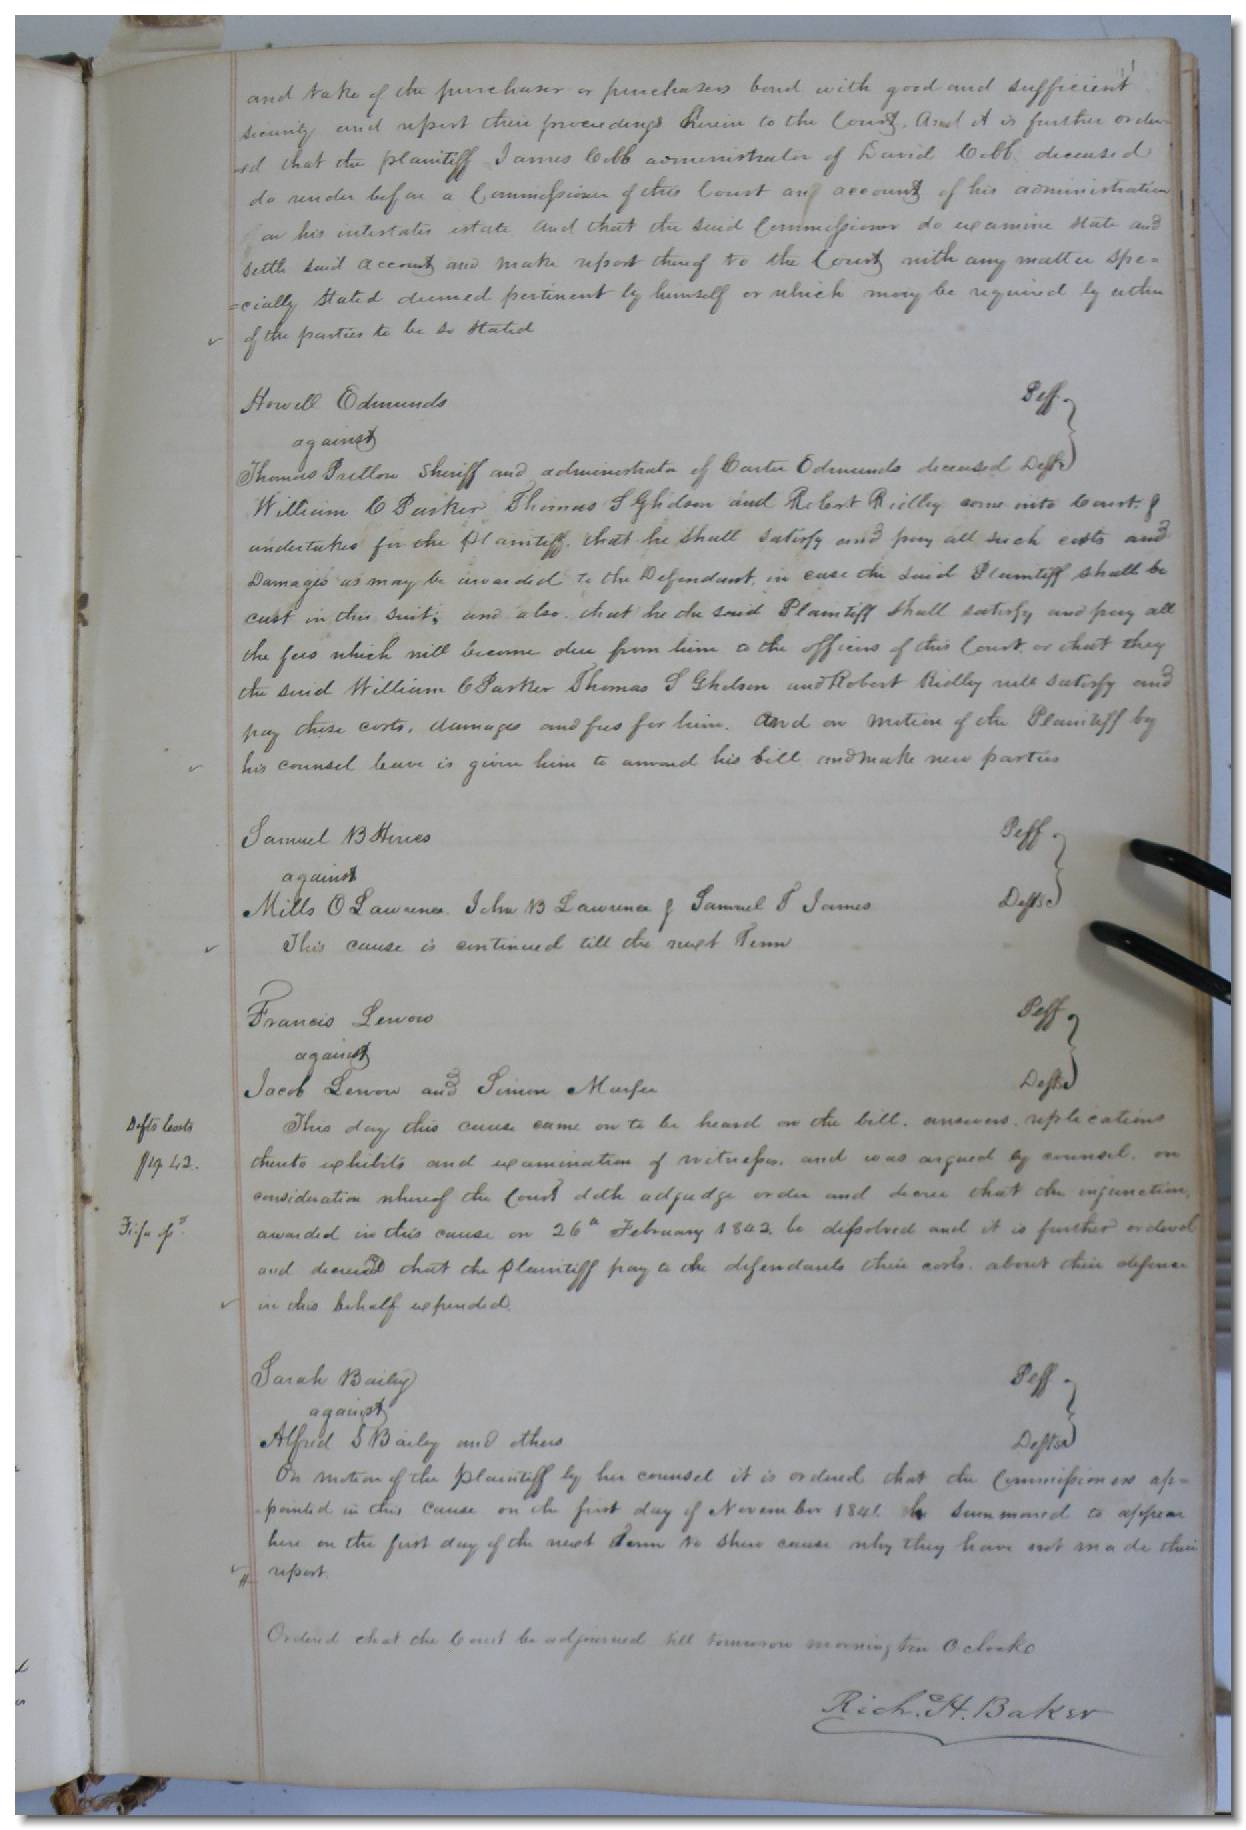 and take of the purchaser or purchasers bond with good and sufficient
security and report their proceedings herein to the Court. And it is further order-
-ed that the plaintiff James Cobb administrator of David Cobb deceased
do render before a Commissioner of this Court an account of his administration
on his intestates estate And that the said Commissioner do examine state and
settle said account and make report thereof to the Court with any matter spe=
=cially stated deemed pertinent by himself or which may be required by either
of the parties to be so stated
Howell Edmunds Plff.
against
Thomas Pretlow Sheriff and administrator of Carter Edmunds deceased Deft
William C Parker, Thomas S Gholson and Robert Ridley come into Court &
undertakes for the Plaintiff that he shall satisfy and pay all such costs and
Damages as may be awarded to the Defendant, in case the said Plaintiff shall be
cast in this suit; and also that he the said Plaintiff shall satisfy and pay all
the fees which will become due from him to the officers of this Court or that they
the said William C Parker Thomas S Gholson and Robert Ridley will satisfy and
pay those costs, damages and fees for him. And on motion of the Plaintiff by
his counsel leave is given him to amend his bill and make new parties
Samuel B Hines Plff.
against
Mills O Lawrence John B Lawrence & Samuel T James Defts
This cause is continued till the next Term
Francis Lewow Plff
against
Jacob Lewow and Simon Murfee Defts
This day this cause came on to be heard on the bill, answers, replications
Defts Costs
thereto exhibits and examination of witnesses, and was argued by counsel, on
consideration whereof the Court doth adjudge order and decree that the injunction
awarded in this cause on 26th February 1842 be dissolved and it is further ordered
and decreed that the plaintiff pay to the defendants their costs about their defence
in this behalf expended.
Sarah Bailey Plff.
against
Alfred S Bailey and others Defts
On motion of the plaintiff by her counsel it is ordered that the Commissioners ap=
=pointed in this cause on the first day of November 1841 be summoned to appear
here on the first day of the next Term to shew cause why they have not made their
report.
Ordered that the Court be adjourned till tomorrow morning ten O clock
Rich. H. Baker